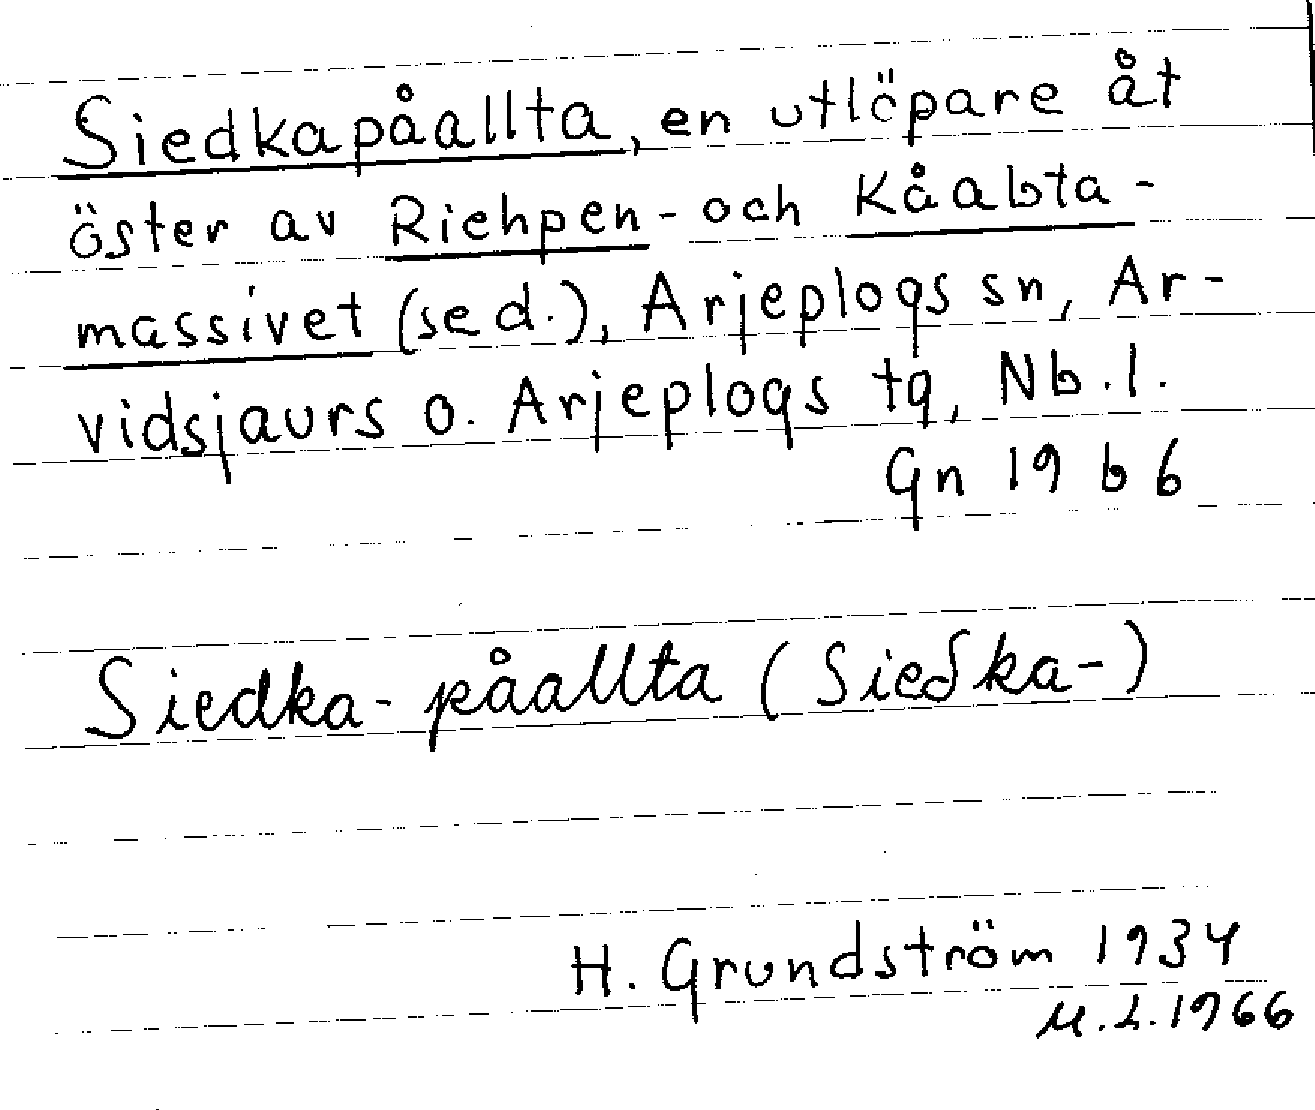 Siedkapåallta, en utlöpare åt
öster av Riehpen- och Kåabta-
massivet (se d.), Arjeplogs sn, Ar-
vidsjaurs o. Arjeplogs tg, Nb.l.
Gn 1966
Siedka-påallta (Sieδka-)
H. Grundström 1934
M.L. 1966